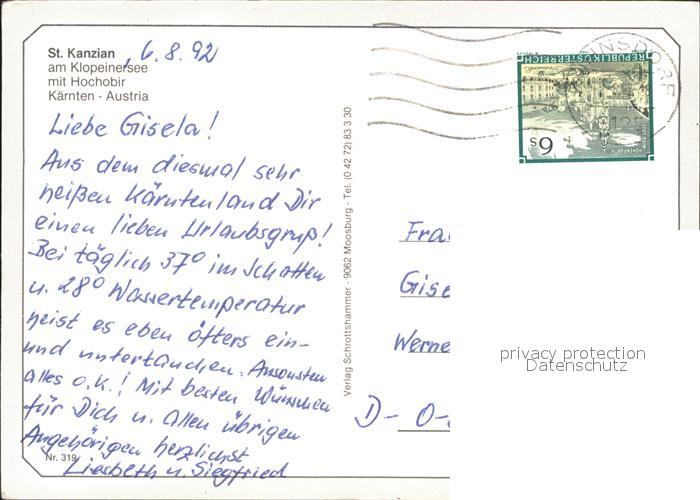 St. Kanzian, 6.8.92
am Klopeinersee
mit Hochobir
Kärnten - Austria
Liebe Gisela!
Aus dem diesmal sehr
heißen Kärntenland Dir
einen lieben Urlaubsgruß!
Bei täglich 37° im Schatten
u. 28° Wassertemperatur
heist es eben öfters ein-
und untertauchen. Ansonsten
alles o.k.! Mit besten Wünschen
für Dich u. allen übrigen
Angehörigen herzlichst
Liesbeth u. Siegfried
Nr. 319
Verlag Schrottshammer - 9062 Moosburg - Tel. (0 42 72) 83 3 30
REPUBLIK ÖSTERREICH
S 6
Fra
Gise
Werne
D- O-
privacy protection
Datenschutz